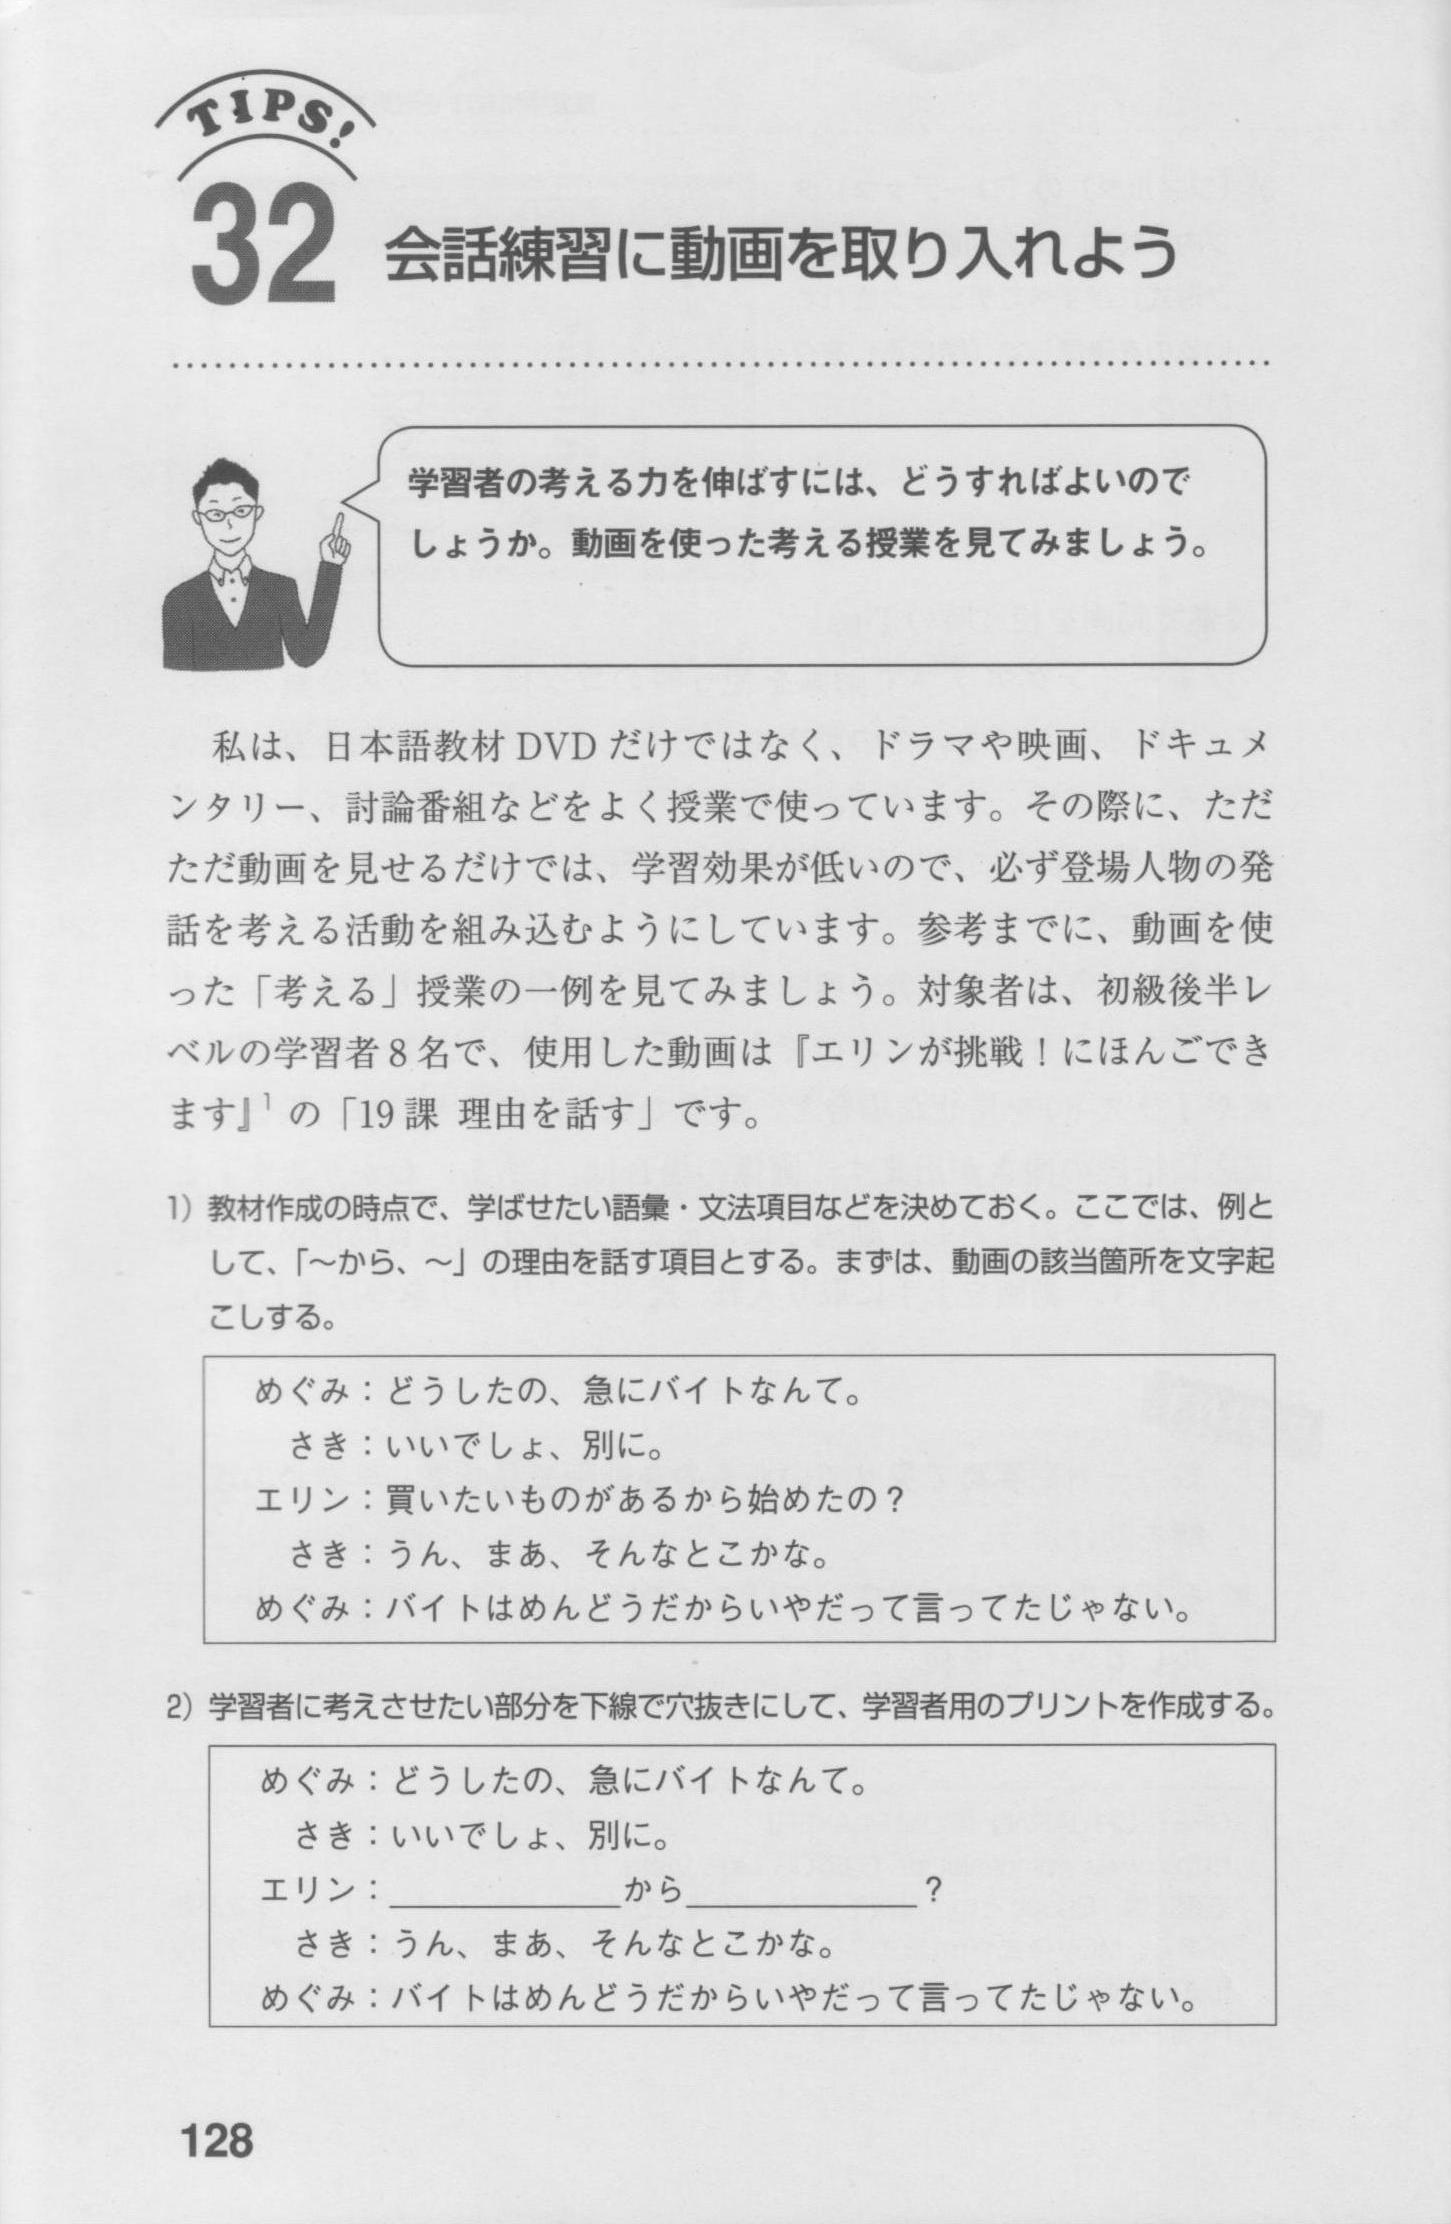 TIPS!
32
会話練習に動画を取り入れよう
学習者の考える力を伸ばすには、どうすればよいので
しょうか。動画を使った考える授業を見てみましょう。
私は、日本語教材 DVD だけではなく、ドラマや映画、ドキュメ
ンタリー、討論番組などをよく授業で使っています。その際に、ただ
ただ動画を見せるだけでは、学習効果が低いので、必ず登場人物の発
話を考える活動を組み込むようにしています。参考までに、動画を使
った「考える」授業の一例を見てみましょう。対象者は、初級後半レ
ベルの学習者8名で、使用した動画は『エリンが挑戦！にほんごでき
ます』1 の「19課 理由を話す」です。
1）教材作成の時点で、学ばせたい語彙・文法項目などを決めておく。ここでは、例と
して、「〜から、〜」の理由を話す項目とする。まずは、動画の該当箇所を文字起
こしする。
めぐみ：どうしたの、急にバイトなんて。
さき：いいでしょ、別に。
エリン：買いたいものがあるから始めたの？
さき：うん、まあ、そんなとこかな。
めぐみ：バイトはめんどうだからいやだって言ってたじゃない。
2）学習者に考えさせたい部分を下線で穴抜きにして、学習者用のプリントを作成する。
めぐみ：どうしたの、急にバイトなんて。
さき：いいでしょ、別に。
エリン：＿＿＿＿＿＿＿から＿＿＿＿＿＿＿？
さき：うん、まあ、そんなとこかな。
めぐみ：バイトはめんどうだからいやだって言ってたじゃない。
128